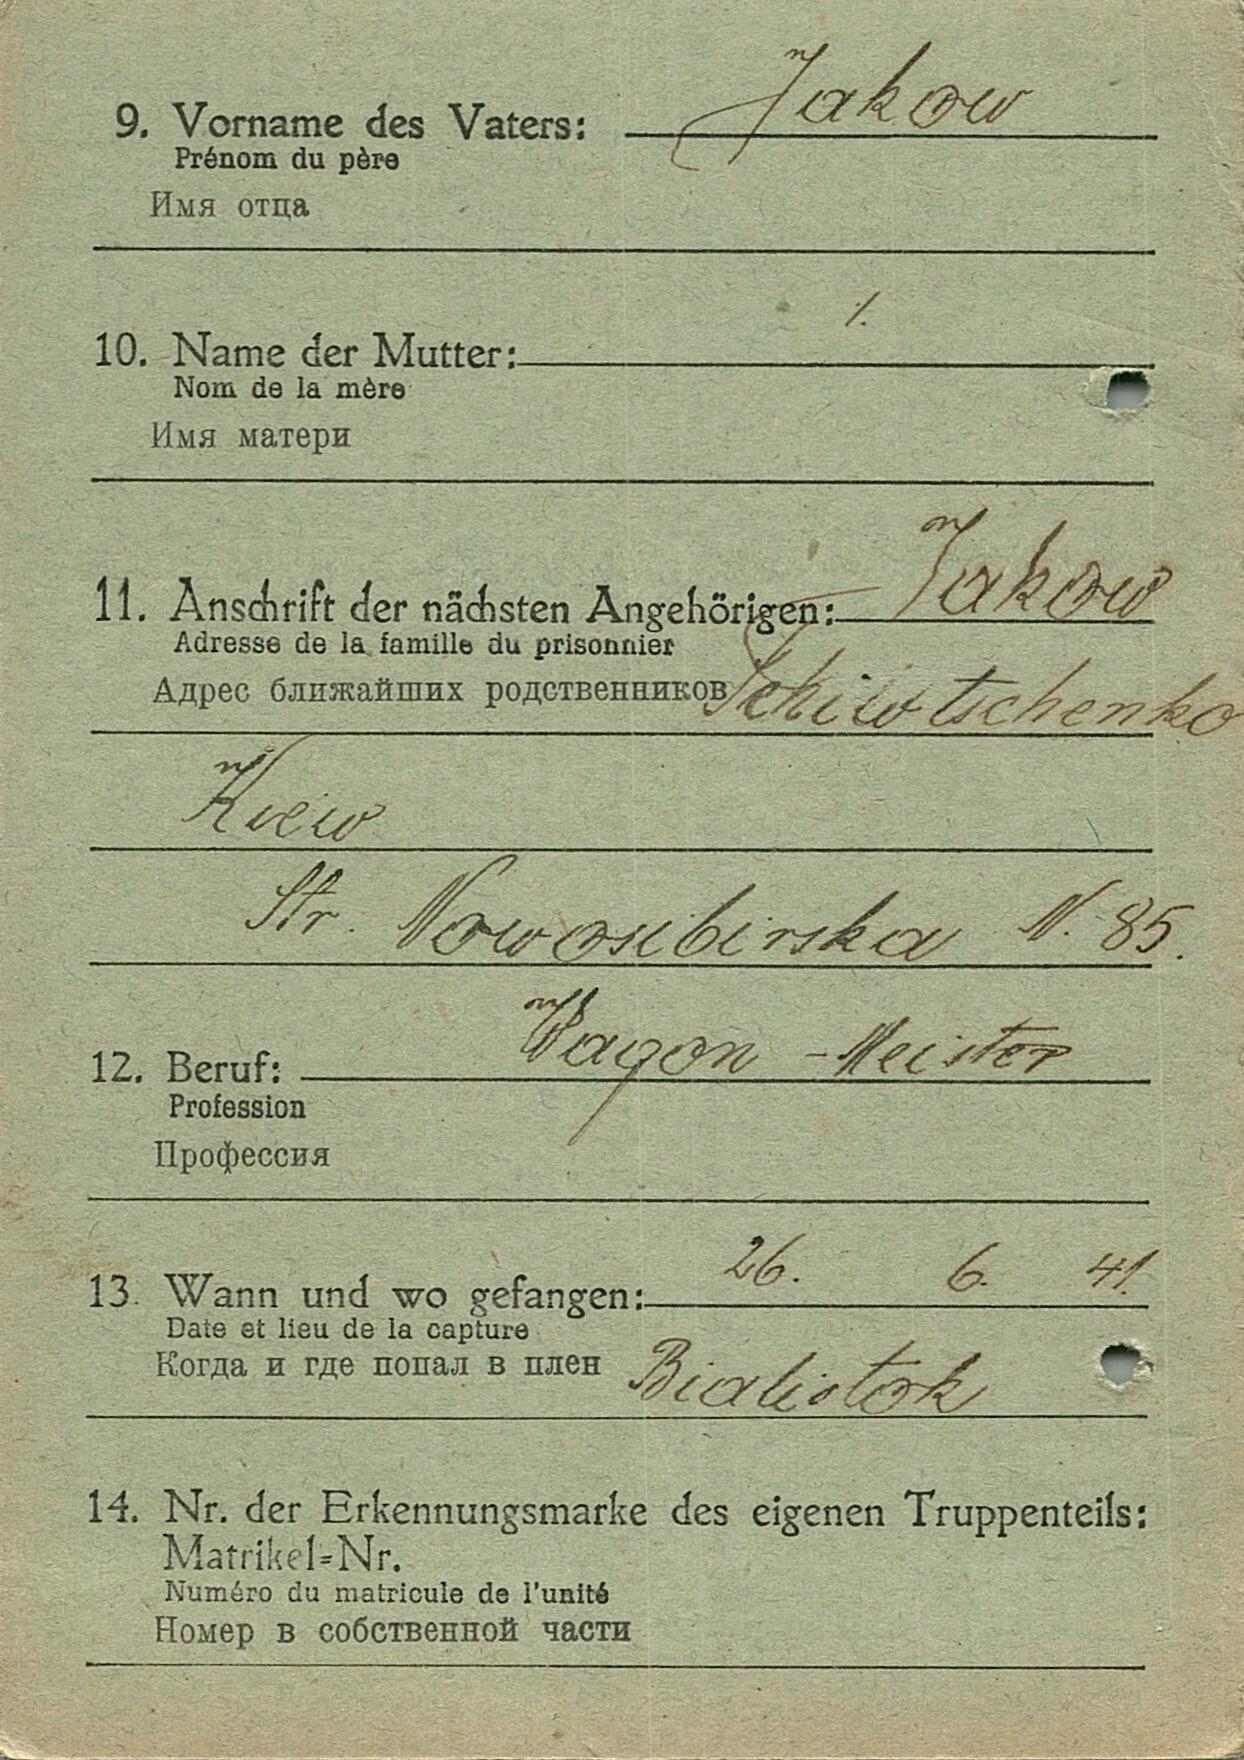 9. Vorname des Vaters: Jakow
Prénom du père
Имя отца
10. Name der Mutter: ⁒
Nom de la mère
Имя матери
11. Anschrift der nächsten Angehörigen: Jakow
Adresse de la famille du prisonnier
Адрес ближайших родственников Schiwtschenko
Kiew
Str. Nowosibirska N. 85.
12. Beruf: Wagon-Meister
Profession
Профессия
13. Wann und wo gefangen: 26. 6. 41.
Date et lieu de la capture
Когда и где попал в плен Bialistok
14. Nr. der Erkennungsmarke des eigenen Truppenteils:
Matrikel=Nr.
Numéro du matricule de l'unité
Номер в собственной части